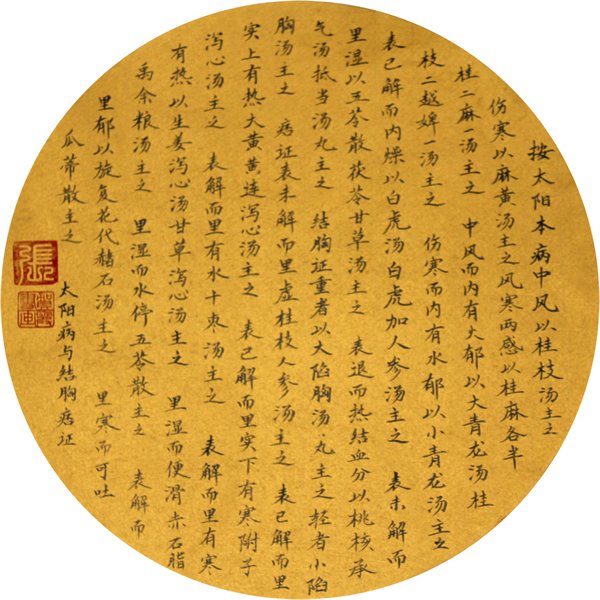 按太阳本病中风以桂枝汤主之
伤寒以麻黄汤主之风寒两感以桂麻各半
桂二麻一汤主之 中风而内有火郁以大青龙汤桂
枝二越婢一汤主之 伤寒而内有水郁以小青龙汤主之
表已解而内燥以白虎汤白虎加人参汤主之 表未解而
里湿以五苓散茯苓甘草汤主之 表退而热结血分以桃核承
气汤抵当汤丸主之 结胸证重者以大陷胸汤·丸主之轻者小陷
胸汤主之 痞证表未解而里虚桂枝人参汤主之 表已解而里
实上有热大黄黄连泻心汤主之 表已解而里实下有寒附子
泻心汤主之 表解而里有水十枣汤主之 表解而里有寒
有热以生姜泻心汤甘草泻心汤主之 里湿而便滑赤石脂
禹余粮汤主之 里湿而水停五苓散主之 表解而
里郁以旋复花代赭石汤主之 里寒而可吐
瓜蒂散主之
太阳病与结胸痞证
張